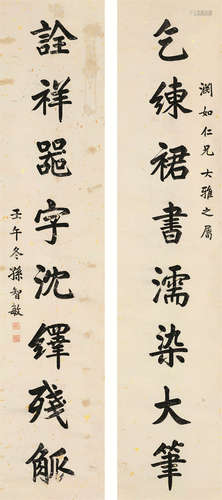 潤如仁兄大雅之屬
乞練裙書濡染大筆
詮祥噐宁沈鐸殘觚
壬午冬孫智敏